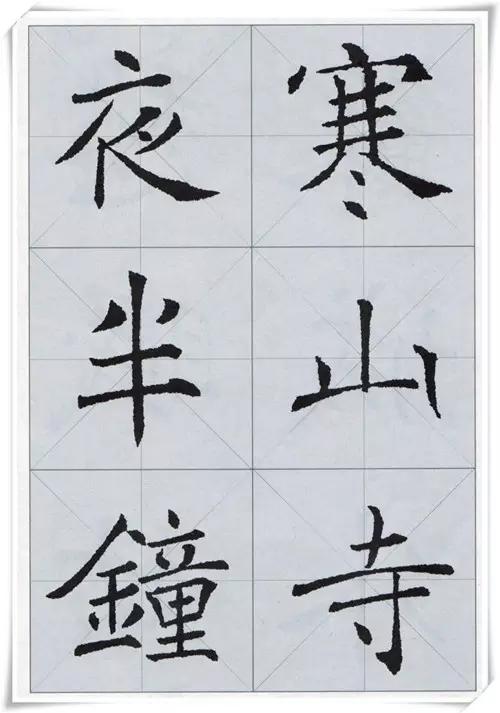 寒山寺
夜半鐘